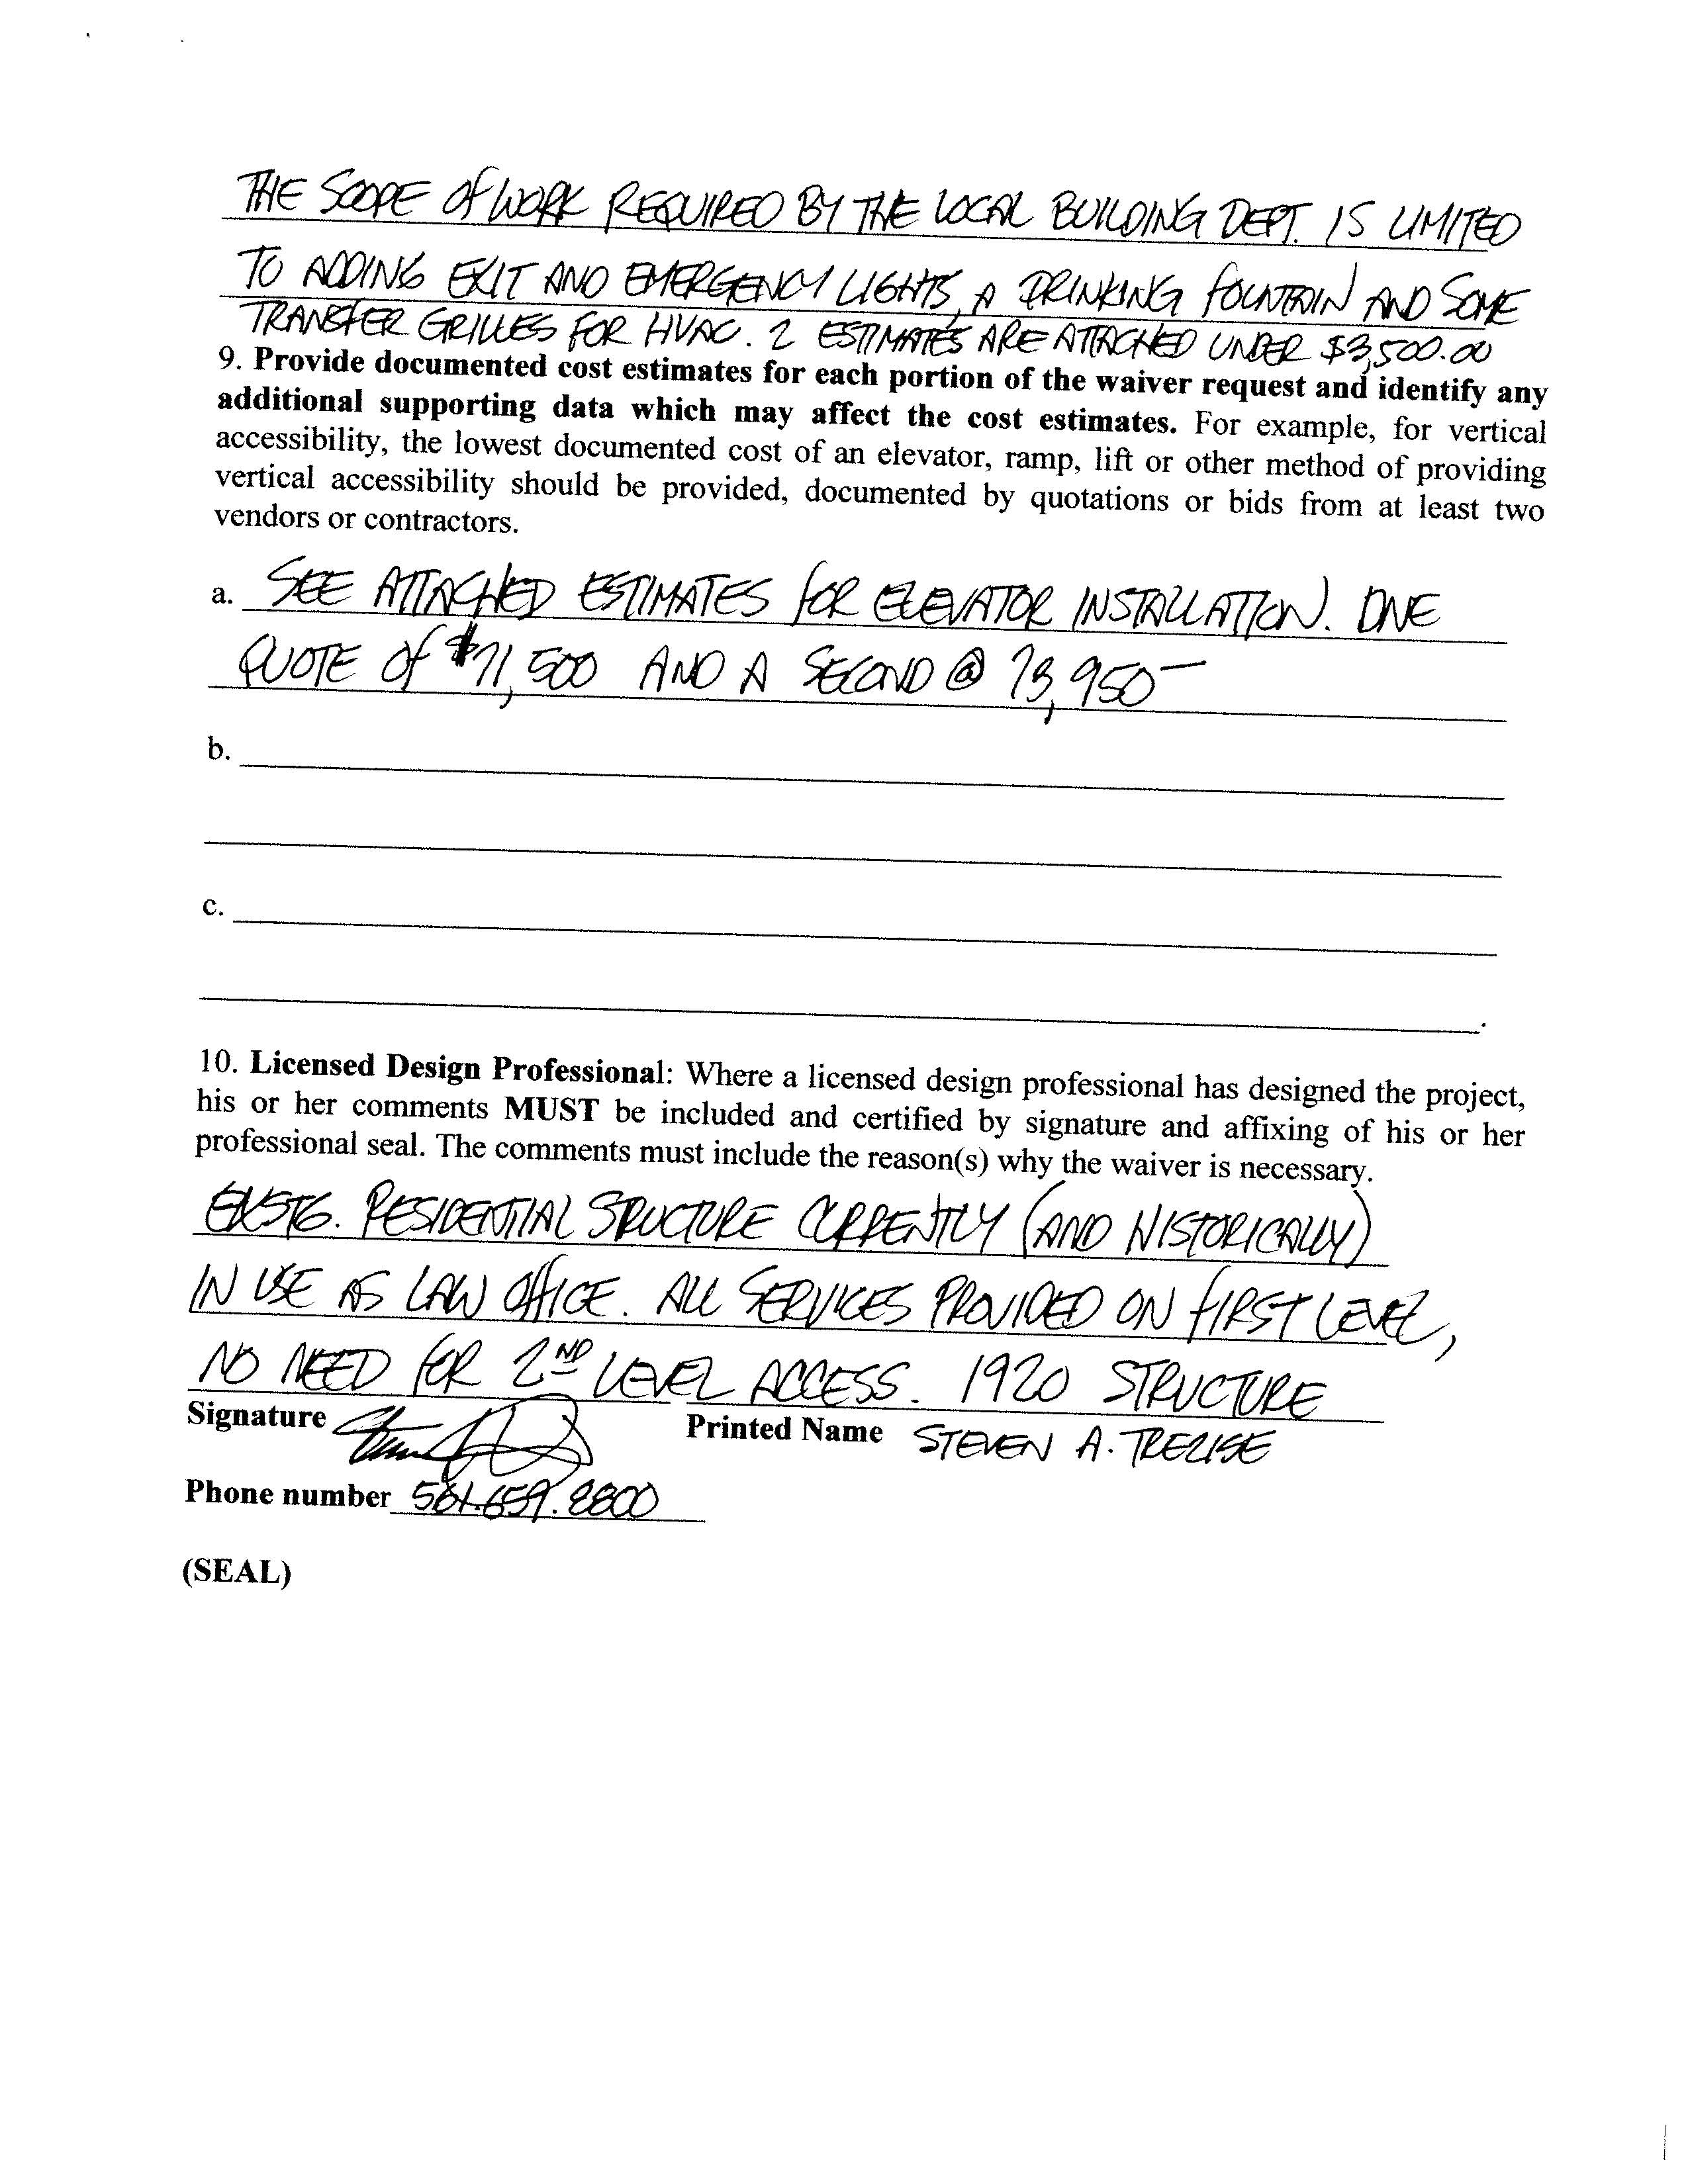 THE SCOPE OF WORK REQUIRED BY THE LOCAL BUILDING DEPT. IS LIMITED
TO ADDING EXIT AND EMERGENCY LIGHTS, A DRINKING FOUNTAIN AND SOME
TRANSFER GRILLES FOR HVAC. 2 ESTIMATES ARE ATTACHED UNDER $3,500.00
9. Provide documented cost estimates for each portion of the waiver request and identify any
additional supporting data which may affect the cost estimates. For example, for vertical
accessibility, the lowest documented cost of an elevator, ramp, lift or other method of providing
vertical accessibility should be provided, documented by quotations or bids from at least two
vendors or contractors.
a. SEE ATTACHED ESTIMATES FOR ELEVATOR INSTALLATION. ONE
QUOTE OF $71,500 AND A SECOND @ 73,950-
b.
c.
10. Licensed Design Professional: Where a licensed design professional has designed the project,
his or her comments MUST be included and certified by signature and affixing of his or her
professional seal. The comments must include the reason(s) why the waiver is necessary.
EXSTG. RESIDENTIAL STRUCTURE CURRENTLY (AND HISTORICALLY)
IN USE AS LAW OFFICE. ALL SERVICES PROVIDED ON FIRST LEVEL,
NO NEED FOR 2ND LEVEL ACCESS. 1920 STRUCTURE
Signature Printed Name STEVEN A.
Phone number 561.659.8800
(SEAL)